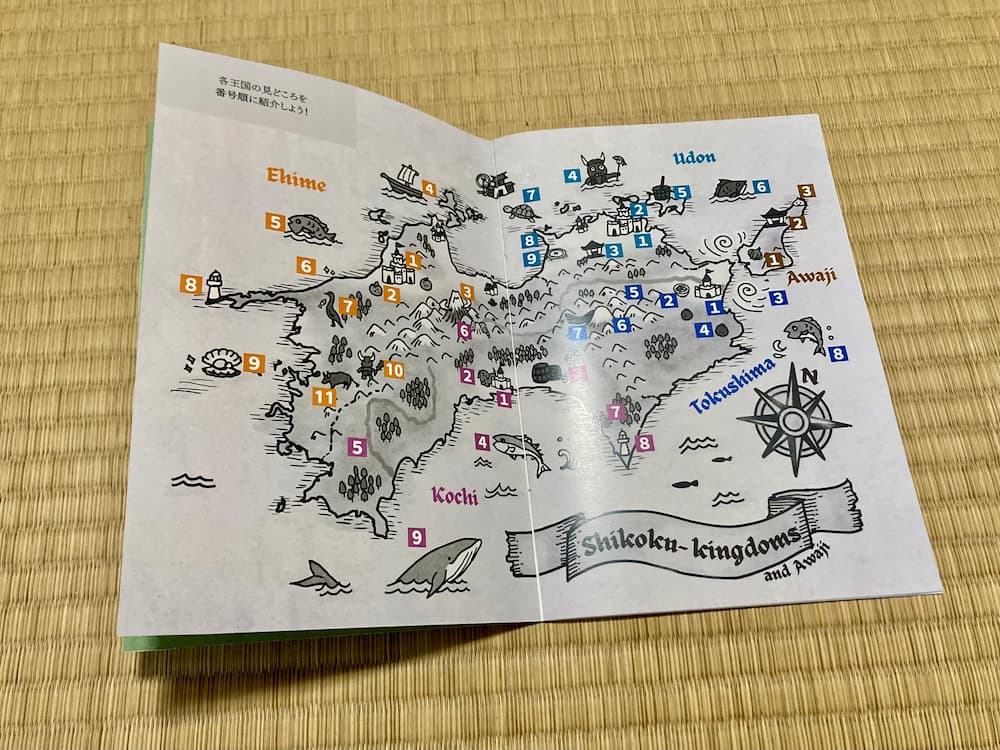 各王国の見どころを
番号順に紹介しよう!
Ehime
4
5
6
8
1
2
3
7
6
9
10
2
11
1
5
4
Kochi
9
Udon
4
7
5
6
3
2
2
8
3
1
9
1
Awaji
5
2
1
3
7
6
4
8
Tokushima
7
8
N
Shikoku-kingdoms
and Awaji